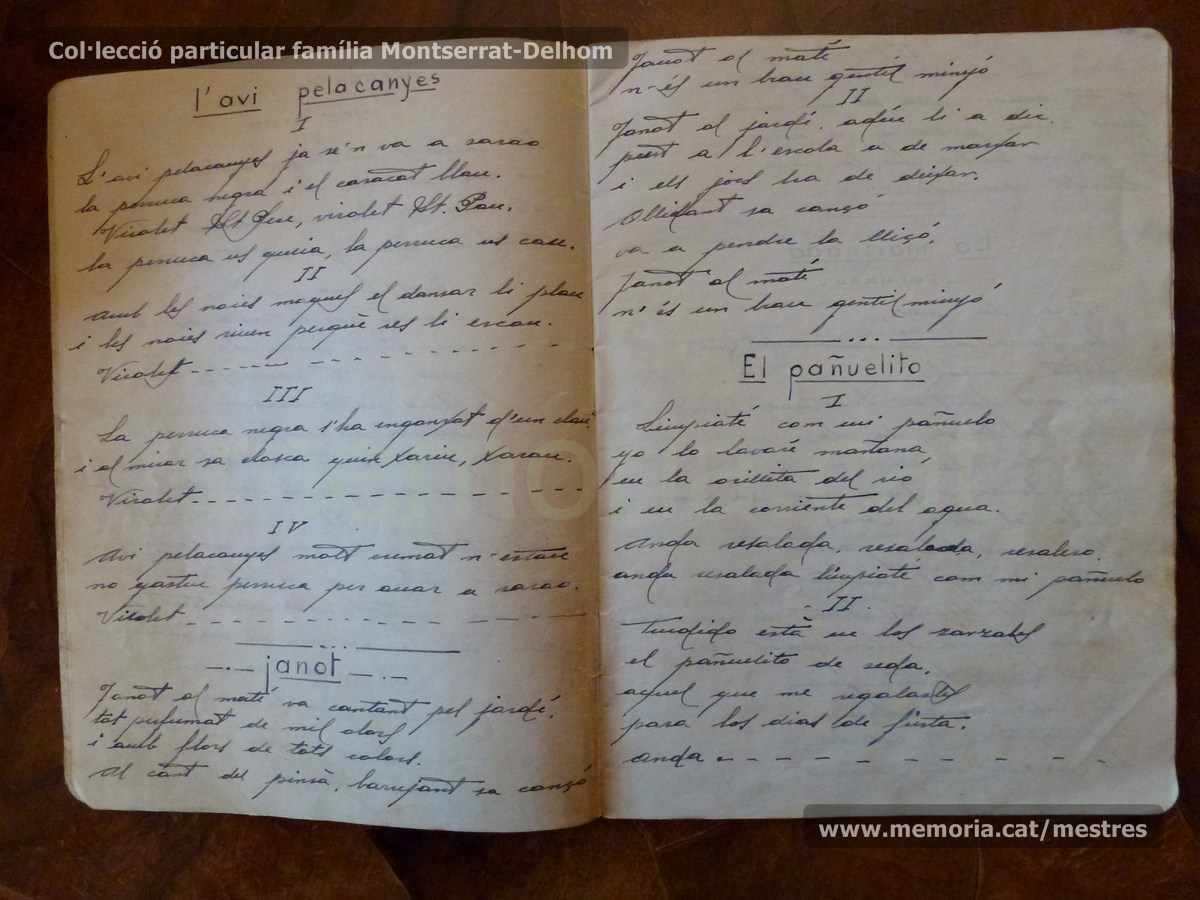 Col·lecció particular família Montserrat-Delhom
l'avi pelacanyes
I
L'avi pelacanyes ja se'n va a sarao
la perruca negra i el casacot blau.
Virolet St. Pere, virolet St. Pau,
la perruca us queia, la perruca us cau.
II
Amb les noies maques el dansar li plau
i les noies riuen perquè res li escau.
Virolet
III
La perruca negra s'ha enganxat d'un clau
i al mirar sa closca quin xariu, xarau.
Virolet
IV
Avi pelacanyes molt cremat n'estau
no gasteu perruca per anar a sarao.
Virolet
janot
Janot al matí va cantant pel jardí,
tot perfumat de mil olors
i amb flors de tots colors.
Al cant del pinsà, barrejant sa cançó
Janot al matí
n'és un brau gentil minyó
II
Janot al jardí, algú li a dir
prest a l'escola a de marxar
i els jocs ha de deixar.
Oblidant sa cançó
va a pendre la lliçó,
Janot al matí
n'és un brau gentil minyó
El pañuelito
I
Limpiaté com mi pañuelo
yo lo lavaré mañana,
en la orillita del rió
i en la corriente del agua.
Anda resalada, resalada, resalero,
anda resalada limpiate com mi pañuelo
II.
Tendido està en los zarzales
el pañuelito de seda,
aquel que me regalastes
para los dias de fiesta.
Anda
www.memoria.cat/mestres